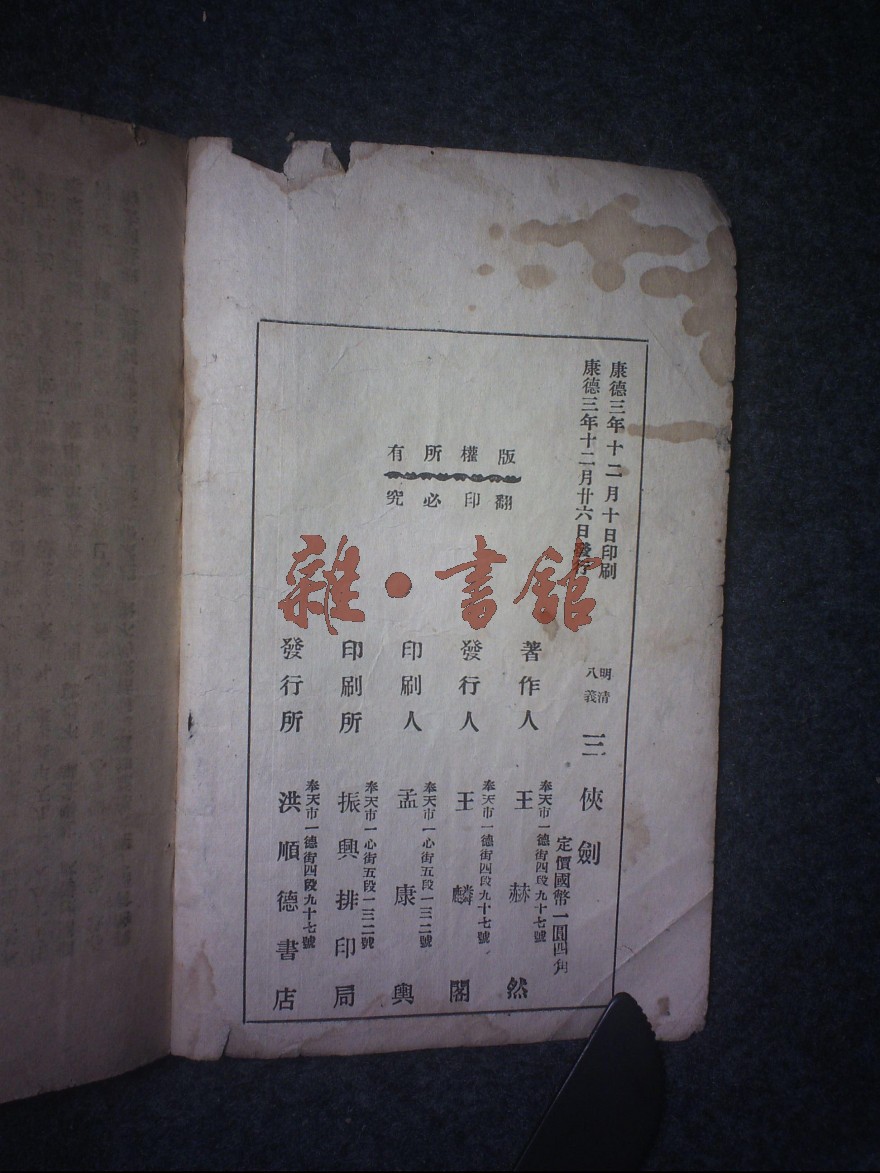 康德三年十二月十日印刷
康德三年十二月廿六日發行
明清
八義
三俠劍
定價國幣一圓四角
版權所有
翻印必究
著作人
奉天市一德街四段九十七號
王赫然
發行人
奉天市一德街四段九十七號
王麟閣
印刷人
奉天市一心街五段一三二號
孟康興
印刷所
奉天市一心街五段一三二號
振興排印局
發行所
奉天市一德街四段九十七號
洪順德書店
雜·書館